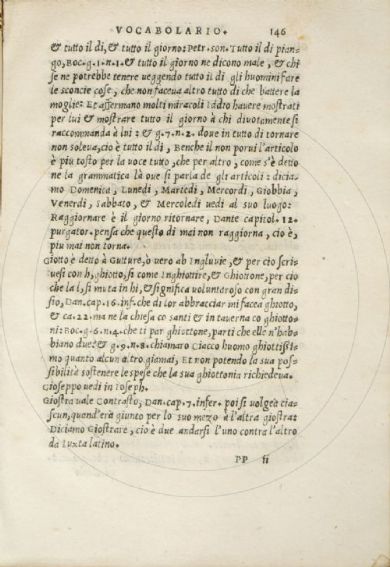 VOCABOLARIO. 146
& tutto il di, & tutto il giorno: Petr. son. Tutto il di pian-
go, Boc. g. 1. n. 1. & tutto il giorno ne dicono male, & chi
se ne potrebbe tenere ueggendo tutto il di gli huomini fare
le sconcie cose, che non faceua altro tutto di che battere la
moglie: Et affermano molti miracoli Iddio hauere mostrati
per lui & mostrare tutto il giorno à chi diuotamente si
raccommanda à lui: & g. 7. n. 2. doue in tutto di tornare
non soleua, cio è tutto il di, Benche il non porui l'articolo
è piu tosto per la voce tutto, che per altro, come s'è detto
ne la grammatica là oue si parla de gli articoli: dicia-
mo Domenica, Lunedi, Martedi, Mercordi, Giobbia,
Venerdi, Sabbato, & Mercoledi uedi al suo luogo:
Raggiornare è il giorno ritornare, Dante capitol. 12.
purgator. pensa che questo di mai non raggiorna, cio è,
piu mai non torna.
Giotto è detto à Gutture, ò uero ab Ingluuie, & per cio scri-
uesi con h, ghiotto, si come Inghiottire, & Ghiottone, per cio
che la l, si muta in hi, & significa voluntoroso con gran di-
sio, Dan. cap. 16. inf. che di lor abbracciar mi facea ghiotto,
& ca. 22. ma ne la chiesa co santi & in tauerna co ghiotto-
ni: Boc. g. 6. n. 4. che ti par ghiottone, parti che elle n'hab-
biano due? & g. 9. n. 8. chiamato Ciacco huomo ghiottissi-
mo quanto alcun altro giamai, Et non potendo la sua pos-
sibilità sostenere le spese che la sua ghiottonia richiedeua.
Gioseppo uedi in Ioseph.
Giostra uale Contrasto, Dan. cap. 7. infer. poi si volgea cia-
scun, quand'era giunto per lo suo mezo à l'altra giostra:
Diciamo Giostrare, cio è due andarsi l'uno contra l'altro
da Iuxta latino.
PP ii